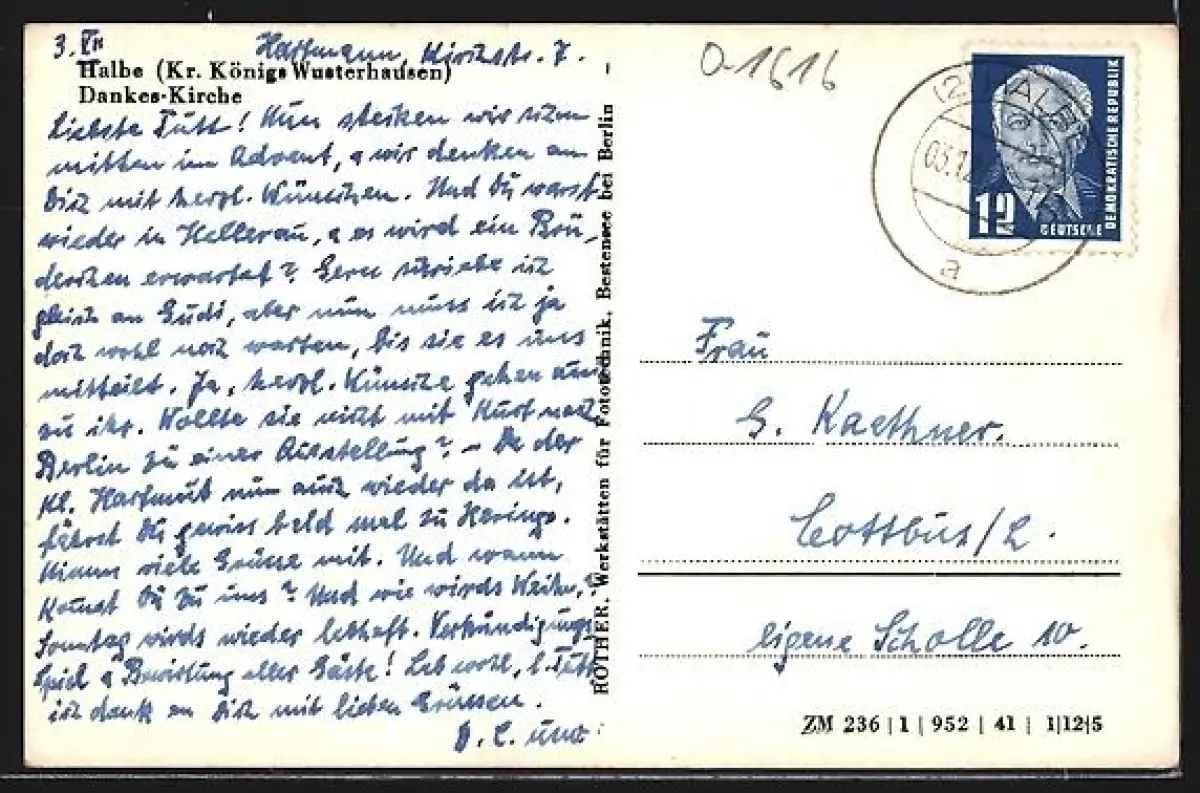 3. XII. Hartmann, Kirchstr. 7.
Halbe (Kr. Königs Wusterhausen)
Dankes-Kirche
Liebste Tutt! Nun stecken wir schon
mitten im Advent, u wir denken an
Dich mit herzl. Wünschen. Und Du warst
wieder in Hellerau, u es wird ein Brü-
derchen erwartet? Gern schriebe ich
gleich an Gudi, aber nun muss ich ja
doch wohl noch warten, bis sie es uns
mitteilt. Ja, herzl. Wünsche gehen auch
zu ihr. Wollte sie nicht mit Kurt nach
Berlin zu einer Ausstellung? – Da der
Kl. Hartmut nun auch wieder da ist,
fährst Du gewiss bald mal zu Herings.
Nimm viele Grüsse mit. Und wann
Komst Du zu uns? Und wie wirds Weihn.?
Sonntag wirds wieder lebhaft. Verkündigungs
Spiel u Bewirtung aller Gäste! Leb wohl, l. Tutt
ich denk an Dich mit lieben Grüssen.
RÖTHER, Werkstätten für Fototechnik, Bestensee bei Berlin
O-1616
(2) HALBE
03.12
a
12
DEUTSCHE
DEMOKRATISCHE REPUBLIK
Frau
G. Kaethner.
Cottbus/L.
Eigene Scholle 10.
ZM 236 | 1 | 952 | 41 | 1|12|5